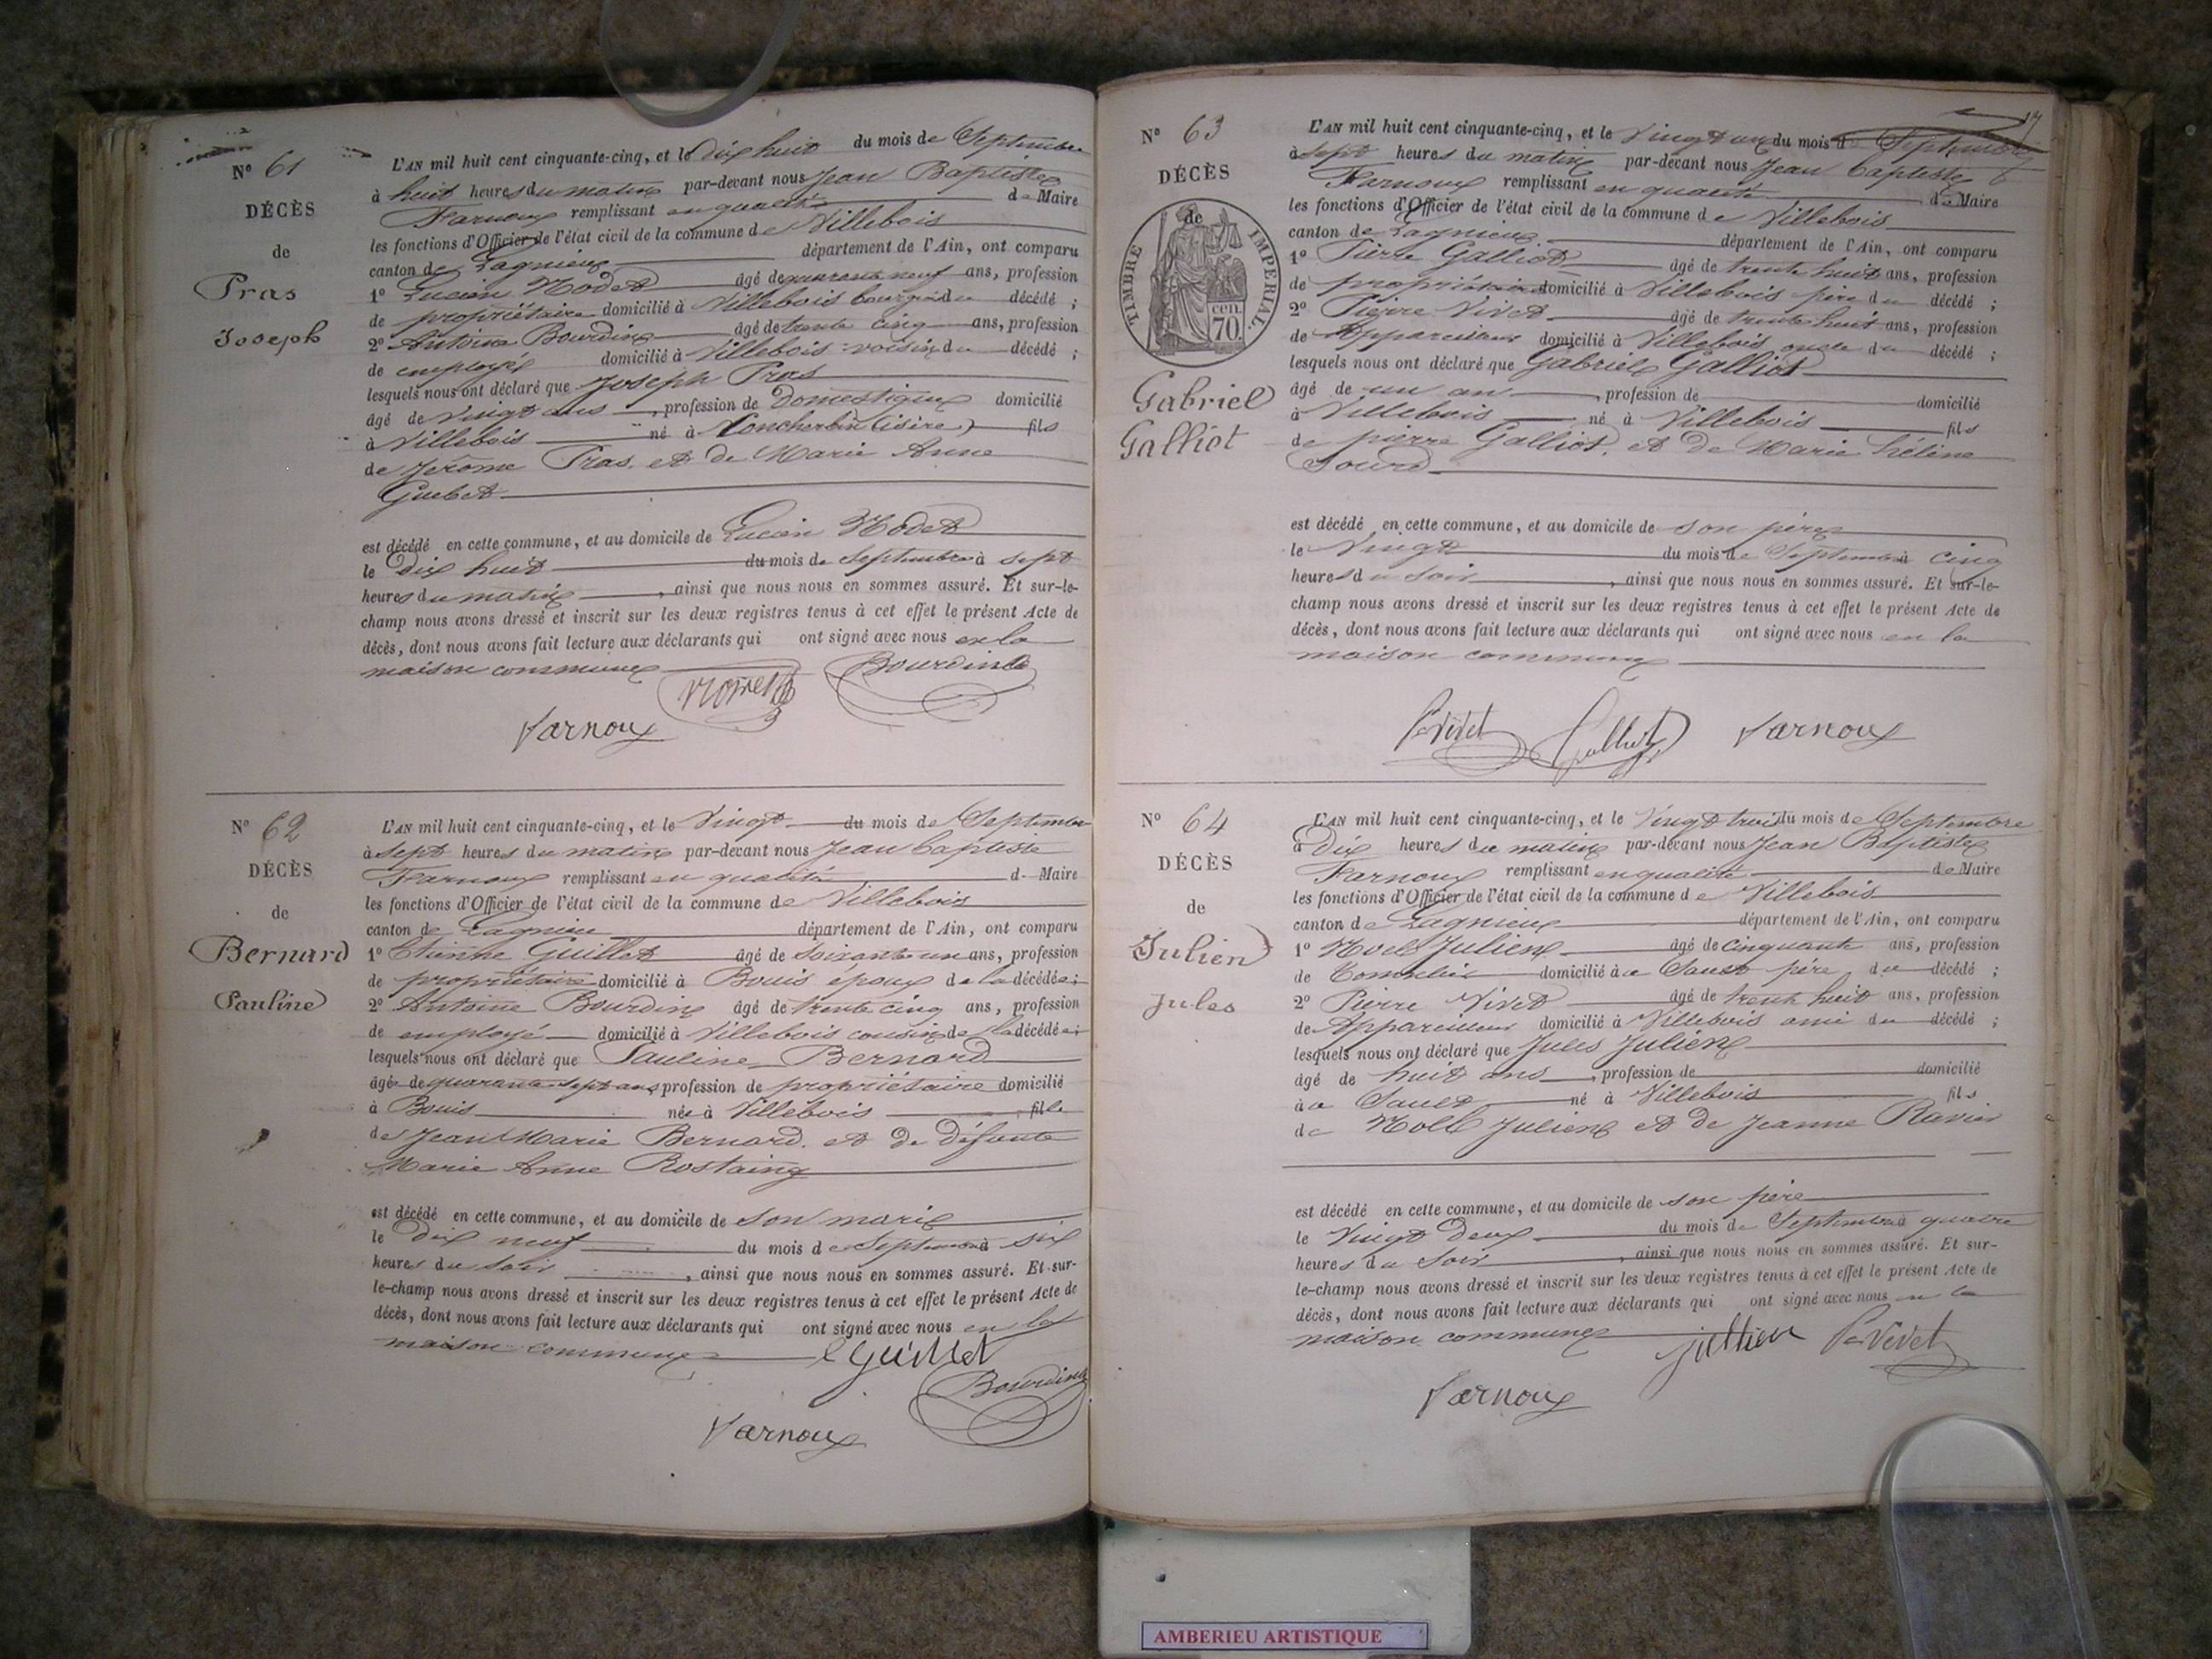 N° 61
DÉCÈS
de
Pras
Joseph
L'AN mil huit cent cinquante-cinq, et le dix huit du mois de Septembre
à huit heures du matin par-devant nous Jean Baptiste
Varnoux remplissant en qualité de Maire
les fonctions d'Officier de l'état civil de la commune de Villebois
canton de Lagnieux département de l'Ain, ont comparu
1° Lucien Modet âgé de quarante neuf ans, profession
de propriétaire domicilié à Villebois du décédé ;
2° Antoine Bourdin âgé de trente cinq ans, profession
de employé domicilié à Villebois voisin du décédé ;
lesquels nous ont déclaré que Joseph Pras
âgé de vingt ans, profession de Domestique domicilié
à Villebois né à (isère) fils
de Jérôme Pras et de Marie Anne
Guebet
est décédé en cette commune, et au domicile de Lucien Modet
le dix huit du mois de Septembre à sept
heures du matin, ainsi que nous nous en sommes assuré. Et sur-le-
champ nous avons dressé et inscrit sur les deux registres tenus à cet effet le présent Acte de
décès, dont nous avons fait lecture aux déclarants qui ont signé avec nous en la
maison commune
Bourdin
Varnoux
N° 62
DÉCÈS
de
Bernard
Pauline
L'AN mil huit cent cinquante-cinq, et le vingt du mois de Septembre
à sept heures du matin par-devant nous Jean baptiste
Varnoux remplissant en qualité de Maire
les fonctions d'Officier de l'état civil de la commune de Villebois
canton de Lagnieu département de l'Ain, ont comparu
1° Etienne Guillet âgé de soixante un ans, profession
de propriétaire domicilié à Bouis époux de la décédée ;
2° Antoine Bourdin âgé de trente cinq ans, profession
de employé domicilié à Villebois cousin de la décédée ;
lesquels nous ont déclaré que Pauline Bernard
âgée de quarante sept ans, profession de propriétaire domicilié
à Bouis née à Villebois fille
de Jean Marie Bernard et de défunte
Marie Anne Rostaing
est décédé en cette commune, et au domicile de son mari
le dix neuf du mois de Septembre à six
heures du soir, ainsi que nous nous en sommes assuré. Et sur-
le-champ nous avons dressé et inscrit sur les deux registres tenus à cet effet le présent Acte de
décès, dont nous avons fait lecture aux déclarants qui ont signé avec nous en la
maison commune
e Guillet
Bourdin
Varnoux
17
N° 63
DÉCÈS
de
TIMBRE IMPERIAL
70 cen.
Gabriel
Galliot
L'AN mil huit cent cinquante-cinq, et le vingt un du mois de Septembre
à sept heures du matin par-devant nous Jean baptiste
Varnoux remplissant en qualité de Maire
les fonctions d'Officier de l'état civil de la commune de Villebois
canton de Lagnieux département de l'Ain, ont comparu
1° Pierre Galliot âgé de trente huit ans, profession
de propriétaire domicilié à Villebois père du décédé ;
2° Pierre Vivet âgé de trente huit ans, profession
de Appareilleur domicilié à Villebois oncle du décédé ;
lesquels nous ont déclaré que Gabriel Galliot
âgé de un an, profession de domicilié
à Villebois né à Villebois fils
de pierre Galliot et de Marie hélène
Sourd
est décédé en cette commune, et au domicile de son père
le Vingt du mois de Septembre à cinq
heures du soir, ainsi que nous nous en sommes assuré. Et sur-le-
champ nous avons dressé et inscrit sur les deux registres tenus à cet effet le présent Acte de
décès, dont nous avons fait lecture aux déclarants qui ont signé avec nous en la
maison commune
P Vivet Galliot Varnoux
N° 64
DÉCÈS
de
Julien
Jules
L'AN mil huit cent cinquante-cinq, et le vingt trois du mois de Septembre
à Dix heures du matin par-devant nous Jean Baptiste
Varnoux remplissant en qualité de Maire
les fonctions d'Officier de l'état civil de la commune de Villebois
canton de Lagnieux département de l'Ain, ont comparu
1° Noel Julien âgé de cinquante ans, profession
de Tonnelier domicilié à a Sault père du décédé ;
2° Pierre Vivet âgé de trente huit ans, profession
de Appareilleur domicilié à Villebois ami du décédé ;
lesquels nous ont déclaré que Jules Julien
âgé de huit ans, profession de domicilié
à a Sault né à Villebois fils
de Noël Julien et de Jeanne Ravier
est décédé en cette commune, et au domicile de son père
le Vingt Deux du mois de Septembre à quatre
heures du soir, ainsi que nous nous en sommes assuré. Et sur-
le-champ nous avons dressé et inscrit sur les deux registres tenus à cet effet le présent Acte de
décès, dont nous avons fait lecture aux déclarants qui ont signé avec nous en la
maison commune
jullien P Vivet
Varnoux
AMBERIEU ARTISTIQUE